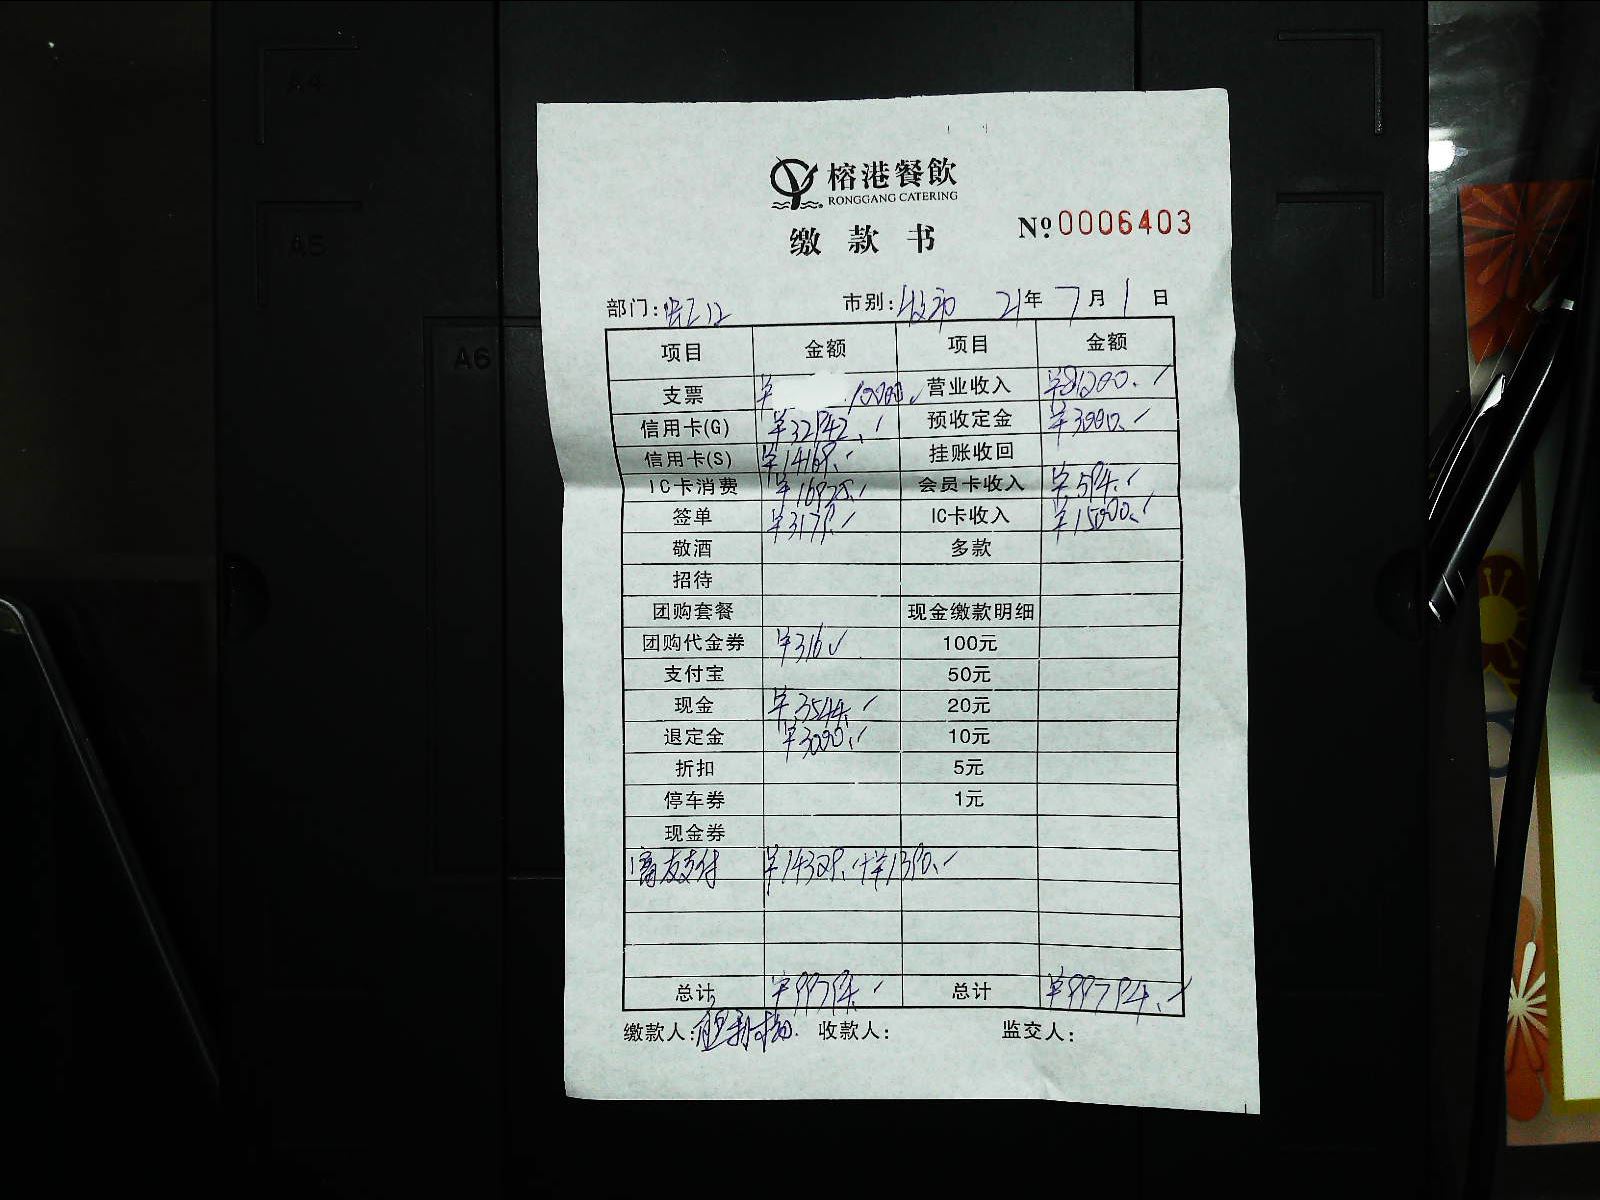 A4
A5
A6
榕港餐飲
RONGGANG CATERING
缴款书 № 0006403
部门: 市别: 21年 7月 1日
项目 金额 项目 金额
支票 ¥ 10000 营业收入 ¥81200.
信用卡(G) ¥32942. 预收定金 ¥3000.
信用卡(S) ¥14169. 挂账收回
IC卡消费 ¥16925. 会员卡收入 ¥594.
签单 ¥3179. IC卡收入 ¥15000.
敬酒 多款
招待
团购套餐 现金缴款明细
团购代金券 ¥316 100元
支付宝 50元
现金 ¥3544. 20元
退定金 ¥3000. 10元
折扣 5元
停车券 1元
现金券
富友支付 ¥14329.+¥1390.
总计 ¥99794. 总计 ¥99794.
缴款人: 收款人: 监交人: